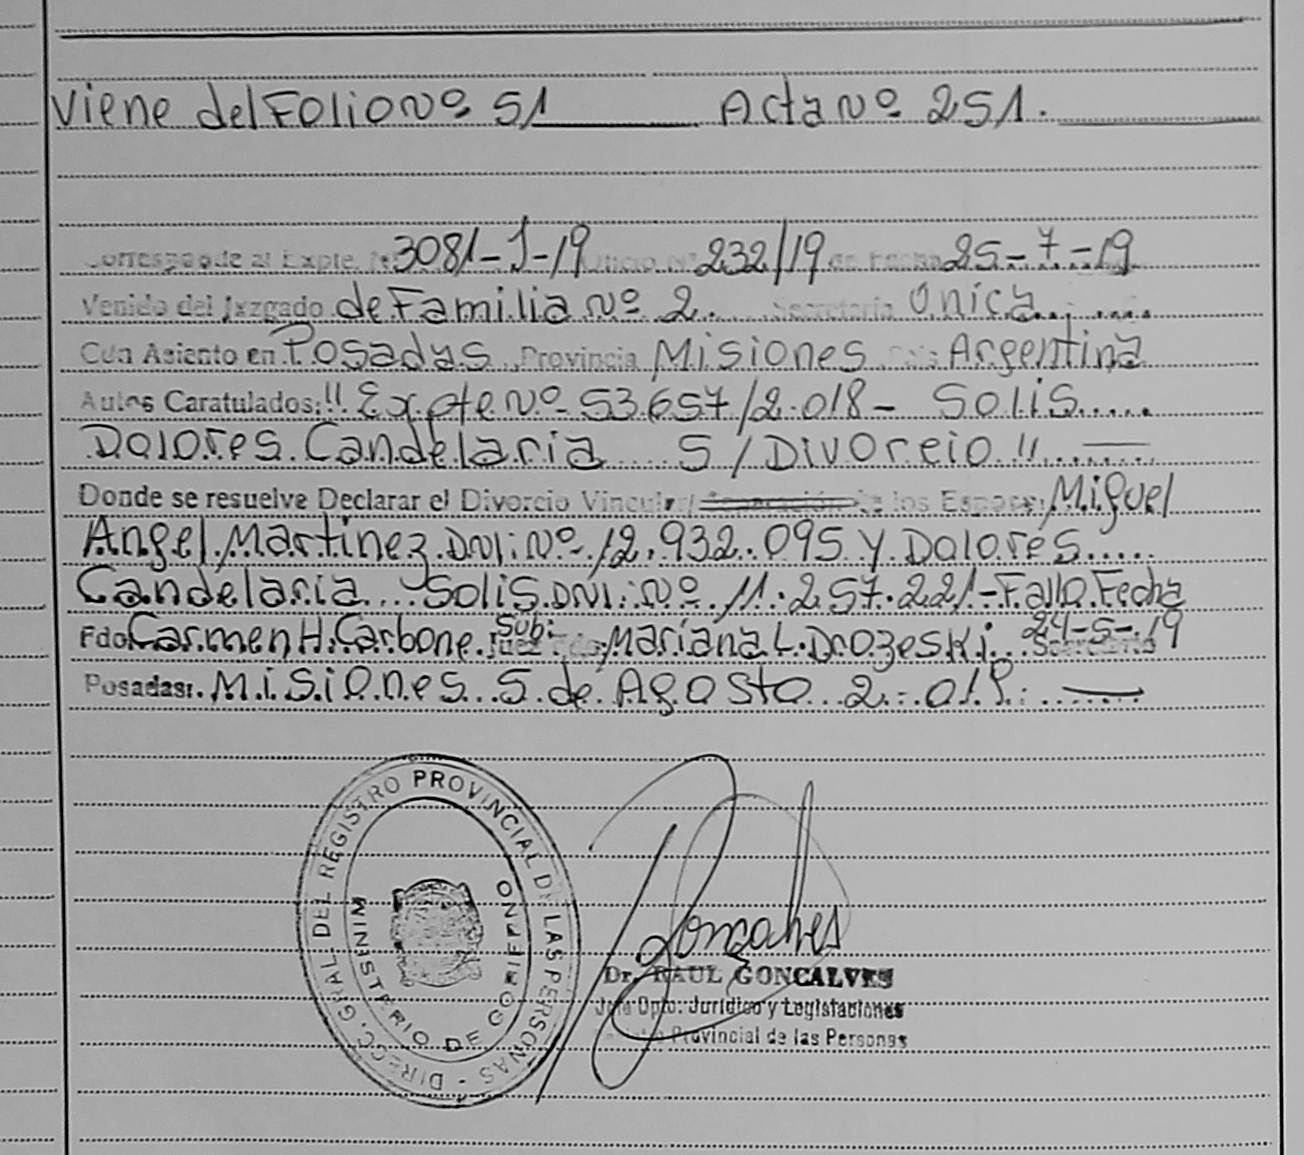 Viene del Folio Nº 51 Acta Nº 251.
Corresponde al Expte. Nº 3081-J-19 Oficio Nº 232/19 de Fecha 25-7-19
Venido del Juzgado de Familia Nº 2. Secretaria Única
Con Asiento en Posadas Provincia Misiones País Argentina
Autos Caratulados: "Expte Nº 53.657/2.018 - Solis
Dolores Candelaria S/Divorcio"
Donde se resuelve Declarar el Divorcio Vincular/ Separación de los Esposos: Miguel
Angel Martinez DNI: Nº 12.932.095 y Dolores
Candelaria Solis DNI: Nº 11.257.221-Fallo Fecha
24-5-19
Fdo Carmen H. Carbone. Juez Sub: Mariana L. Drozeski. Secretaria
Posadas: Misiones 5 de Agosto 2.019.
DIRECC. GRAL. DEL REGISTRO PROVINCIAL DE LAS PERSONAS
MINISTERIO DE GOBIERNO
Goncalves
Dr. RAUL GONCALVES
Jefe Dpto. Jurídico y Legislaciones
Provincial de las Personas